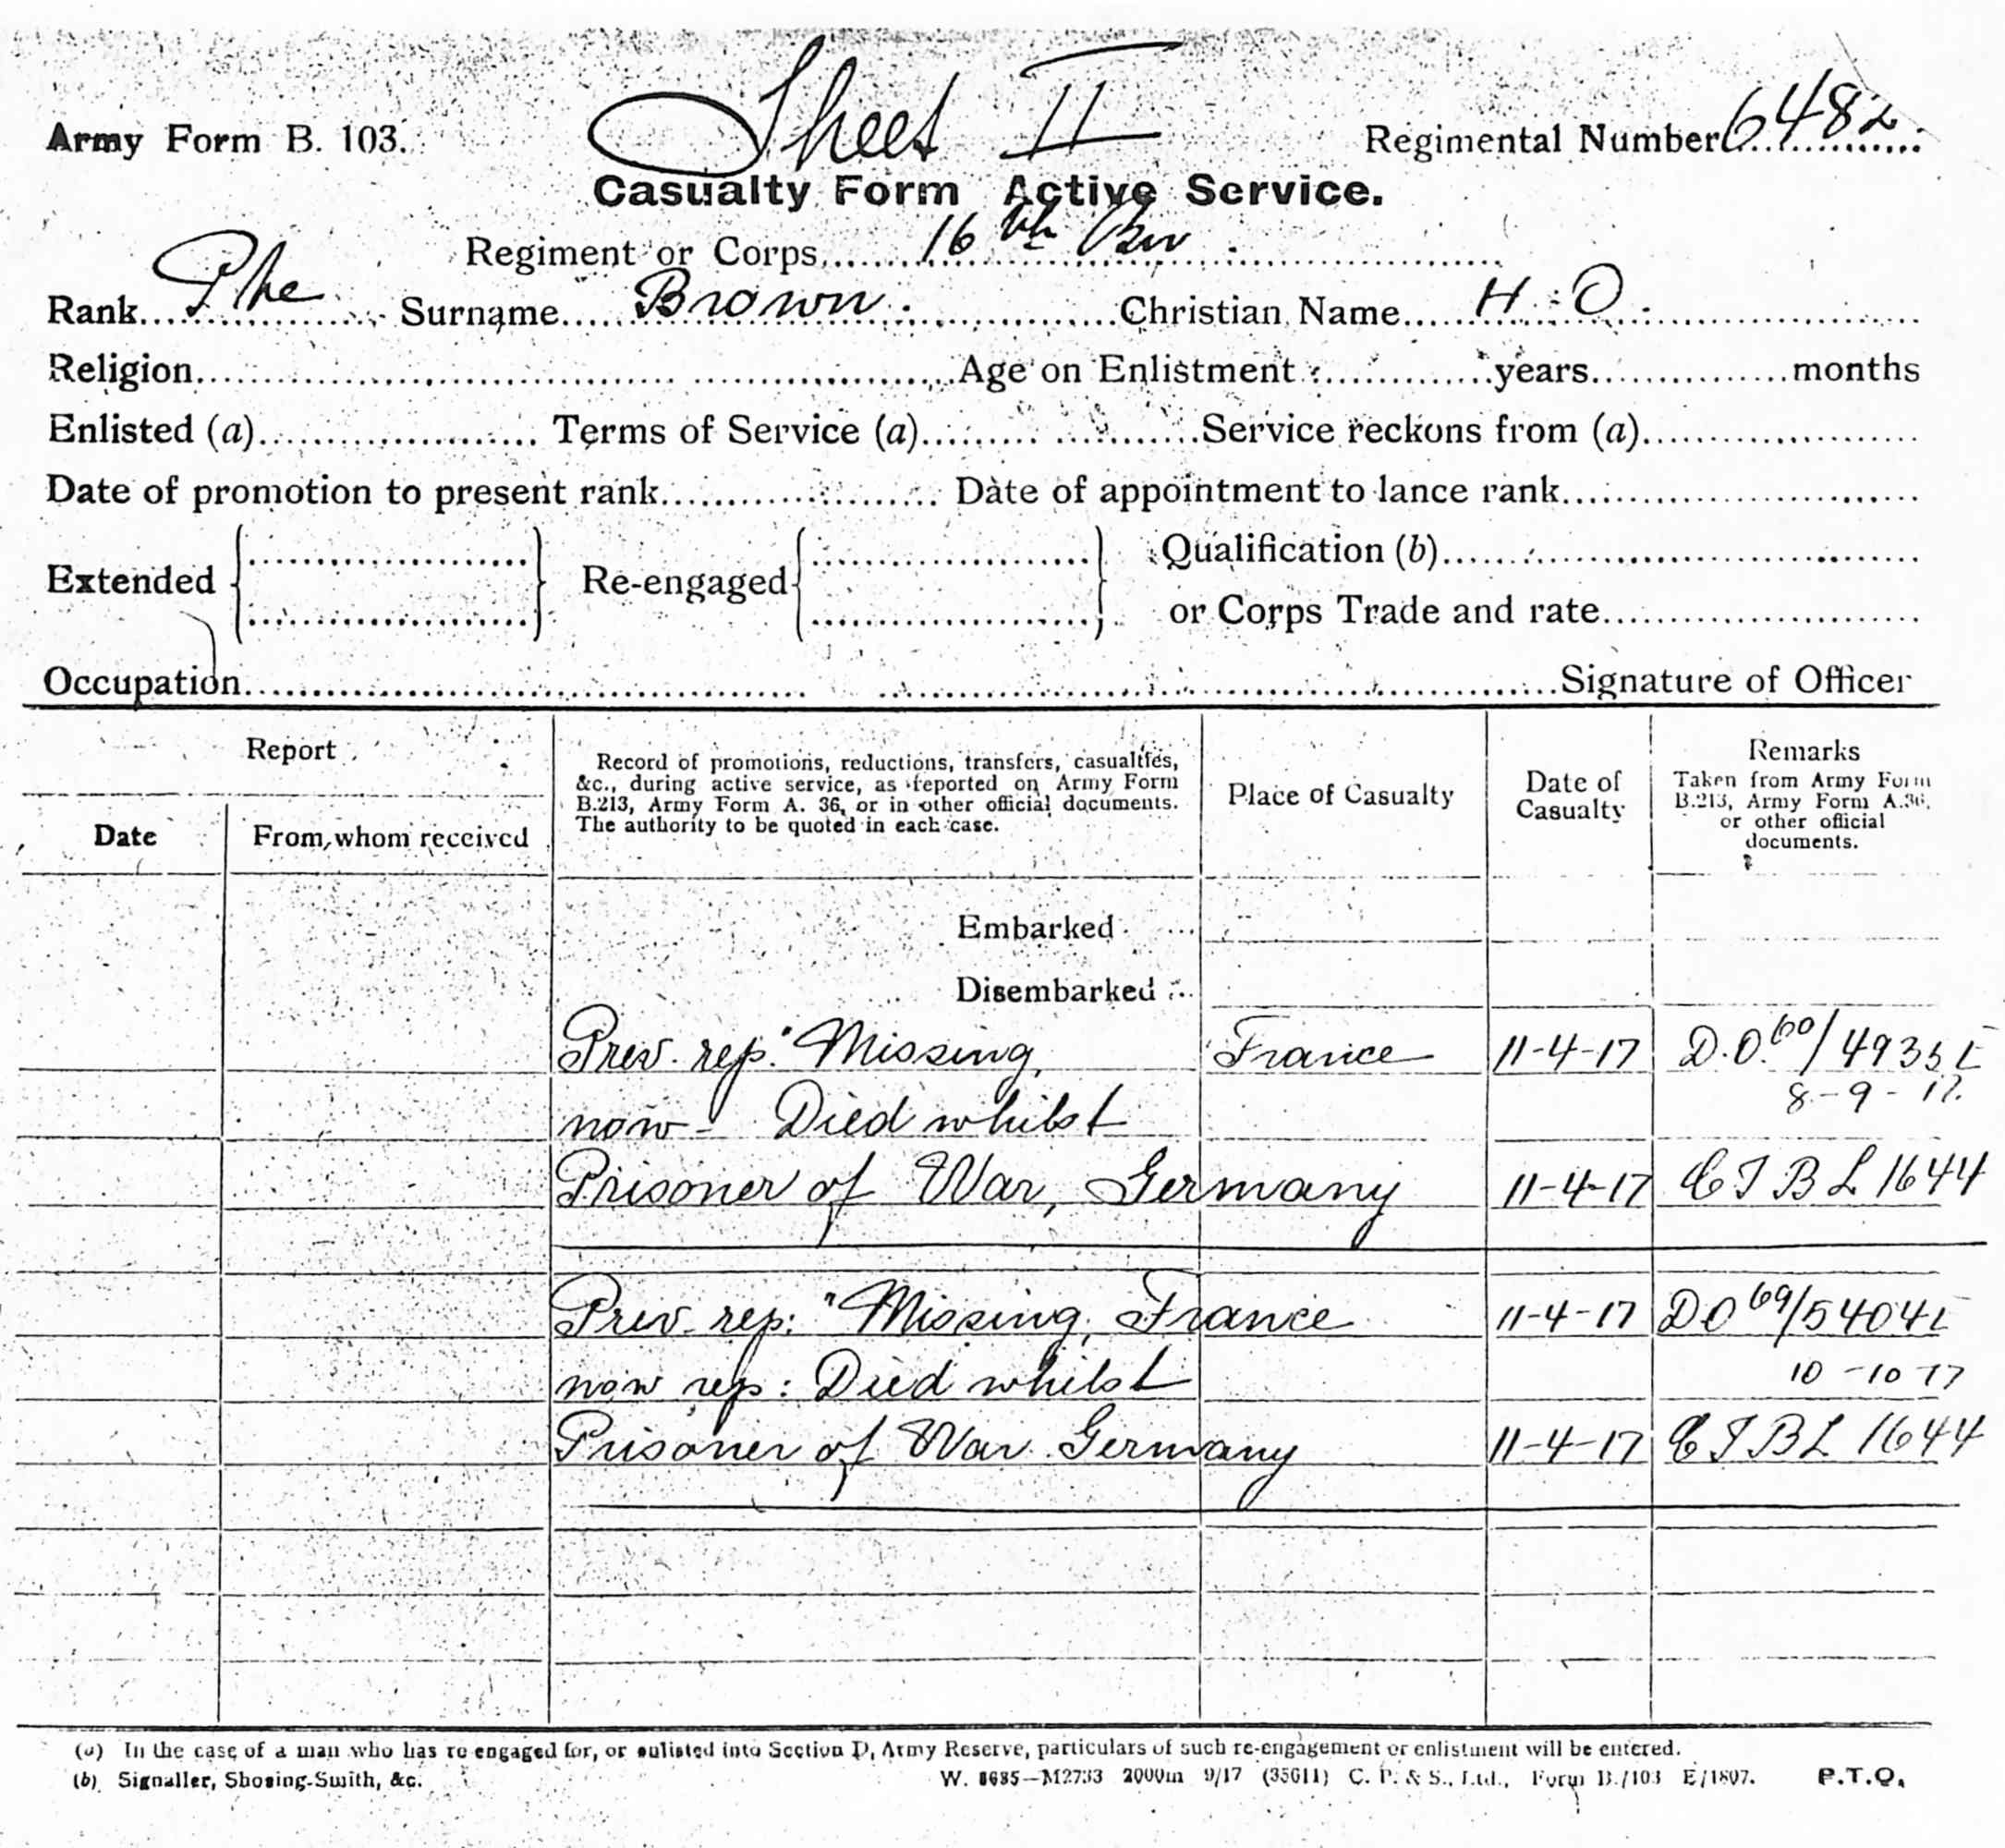 Sheet II
Army Form B. 103. Regimental Number 6482
Casualty Form Active Service.
Regiment or Corps 16th Bn
Rank Pte Surname Brown Christian Name H. O.
Religion Age on Enlistment years months
Enlisted (a) Terms of Service (a) Service reckons from (a)
Date of promotion to present rank Date of appointment to lance rank
Extended Re-engaged Qualification (b)
or Corps Trade and rate
Occupation Signature of Officer
Report
Date
From whom received
Record of promotions, reductions, transfers, casualties,
&c., during active service, as reported on Army Form
B.213, Army Form A. 36, or in other official documents.
The authority to be quoted in each case.
Place of Casualty
Date of
Casualty
Remarks
Taken from Army Form
B.213, Army Form A.36,
or other official
documents.
Embarked
Disembarked
Prev. rep. "Missing, France 11-4-17 D.O. 60/4935
8-9-17.
now - Died whilst
Prisoner of War, Germany 11-4-17 1644
Prev. rep: "Missing, France 11-4-17 DO 69/5404
10-10-17
now rep: Died whilst
Prisoner of War Germany 11-4-17 1644
(a) In the case of a man who has re-engaged for, or enlisted into Section D, Army Reserve, particulars of such re-engagement or enlistment will be entered.
(b) Signaller, Shoeing-Smith, &c. W. 8685—M2733 2000m 9/17 (35611) C. P. & S., Ltd., Form B./103 E/1807. P.T.O.